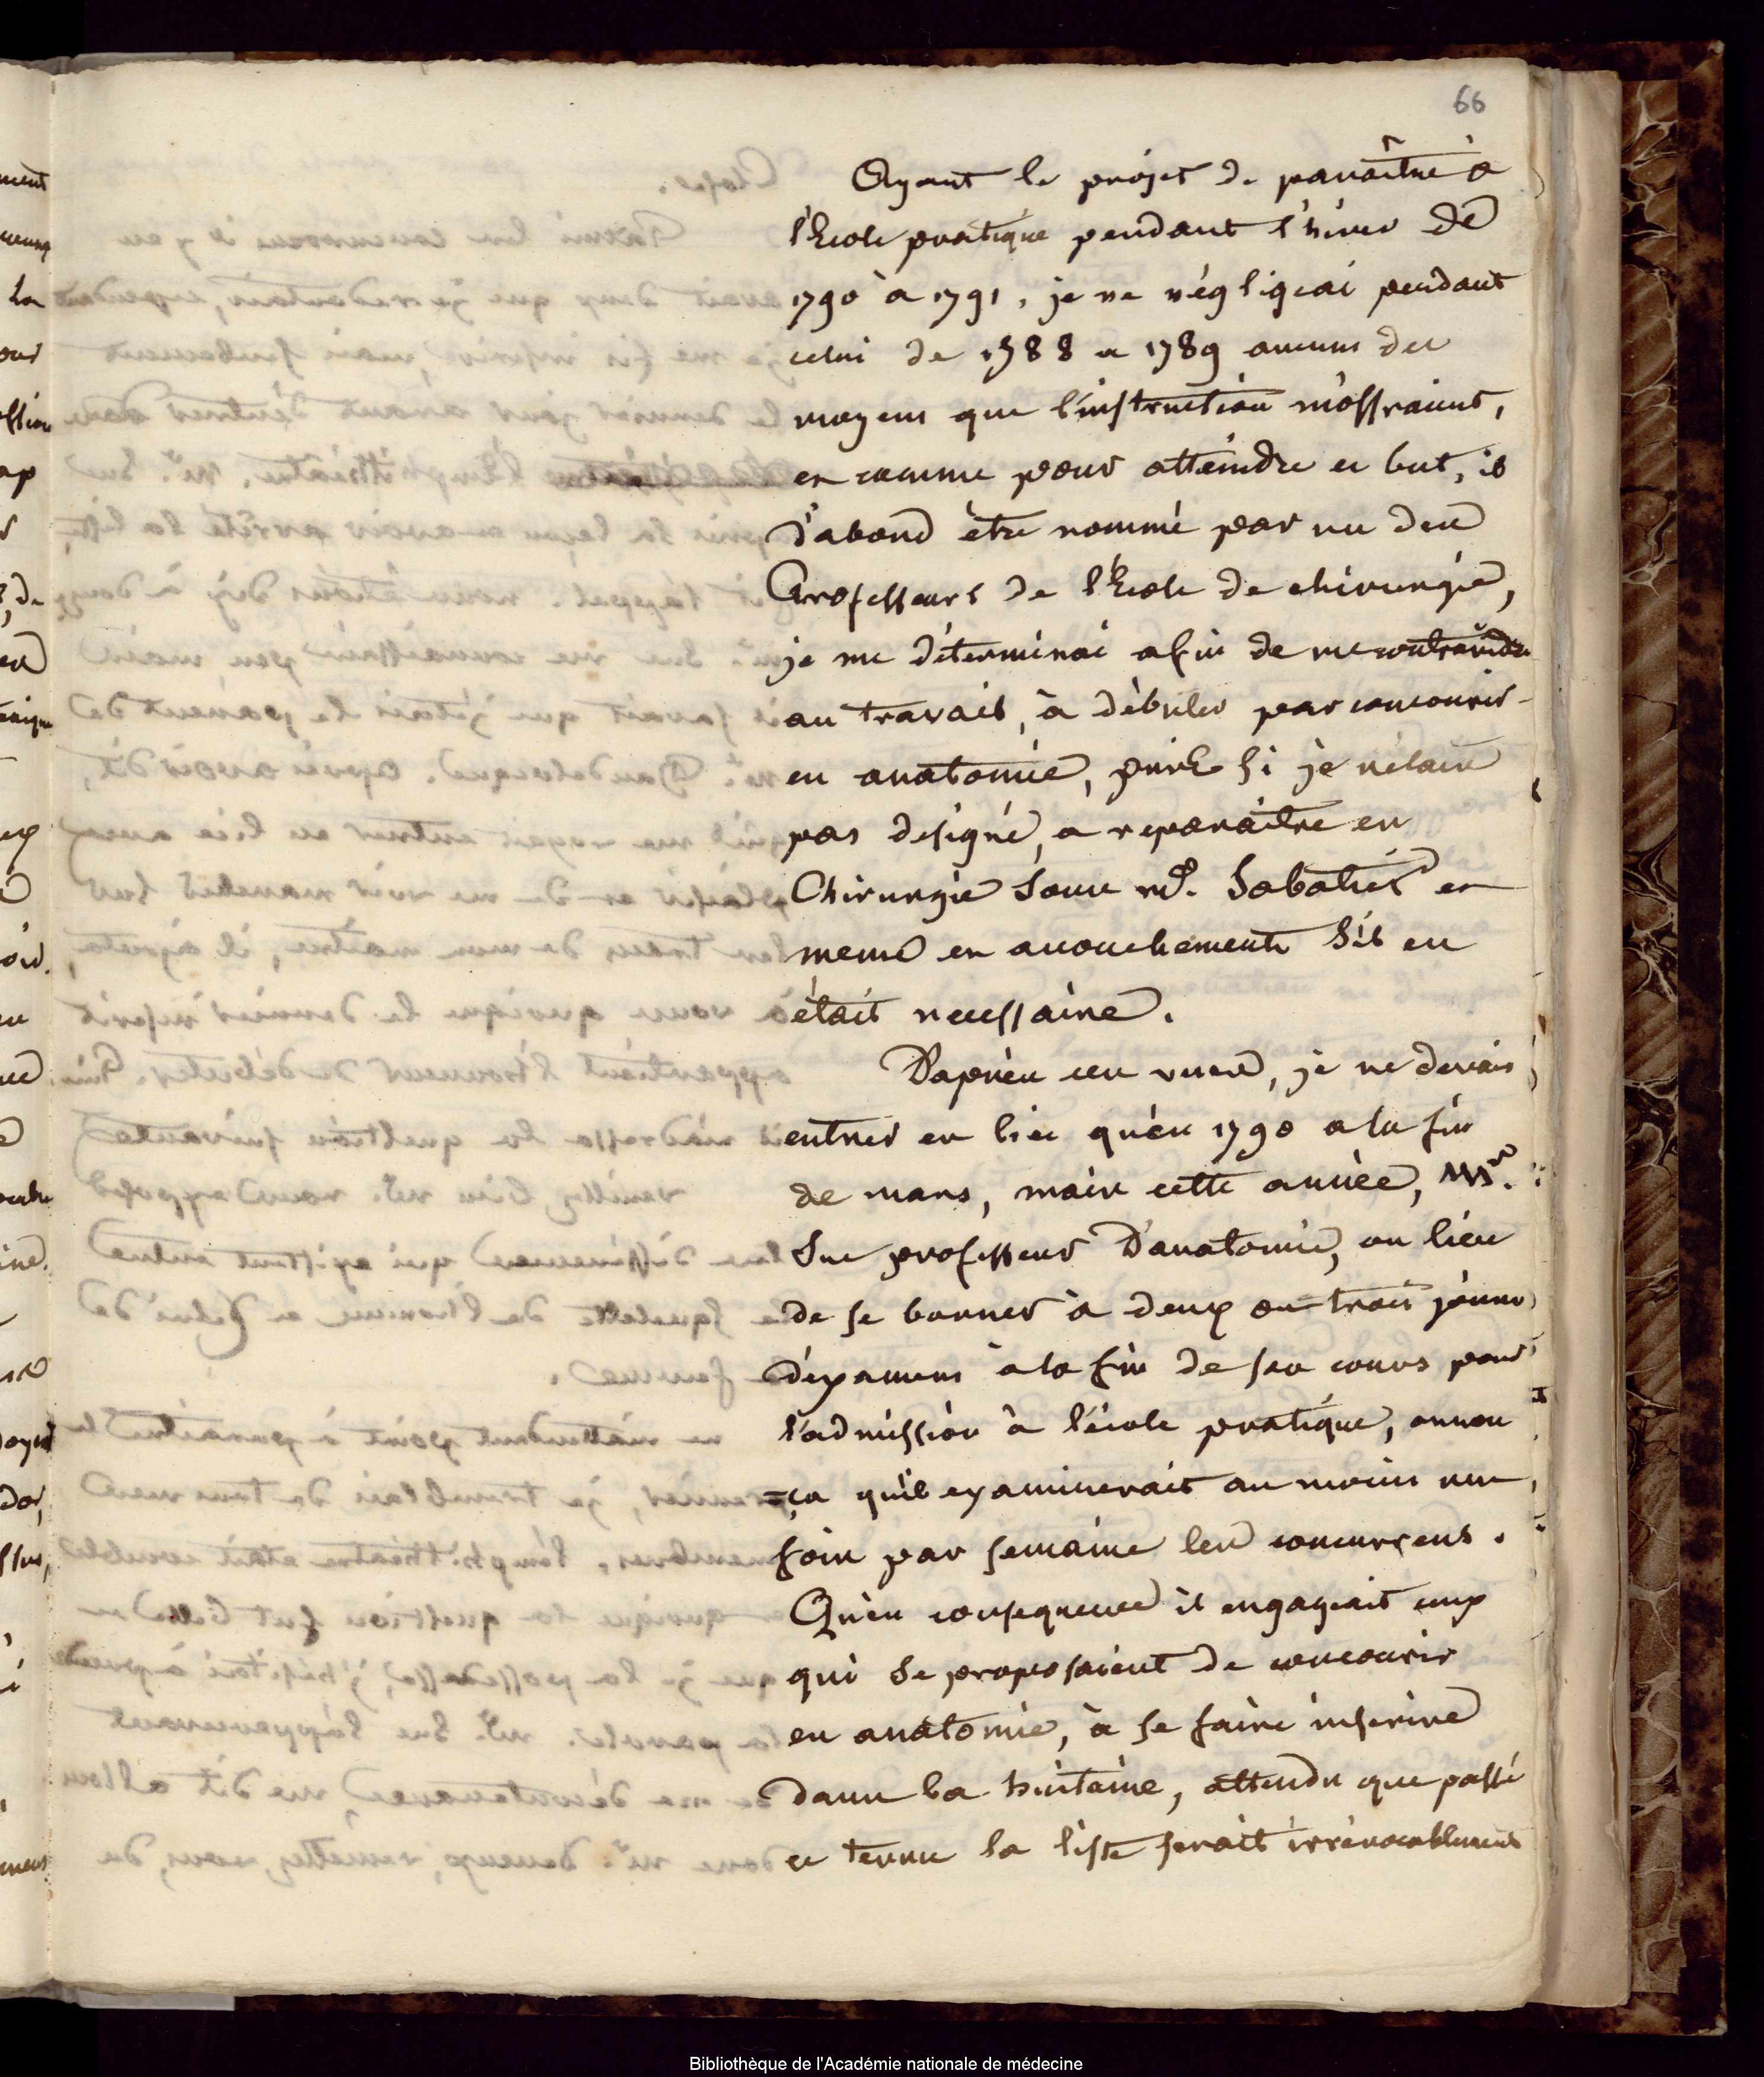 66
Ayant le projet de paraître à
l'Ecole pratique pendant l'hiver de
1790 à 1791, je ne négligeai pendant
celui de 1788 a 1789 aucuns des
moyens que l'instruction m'offraient,
et comme pour atteindre ce but, il
d'abord être nommé par un des
Professeurs de l'Ecole de chirurgie,
je me déterminai afin de me contraindre
au travail, à débuter par concourir
en anatomie, puis si je n'étais
pas designé, a reparaitre en
Chirurgie sous mr. Sabatier et
meme en accouchements s'il en
était necessaire.
D'après ces vues, je ne devais
entrer en lice qu'en 1790 a la fin
de mars, mais cette année, Mr.
Sue professeur D'anatomie, au lieu
de se borner à deux ou trois jours
d'examens à la fin de ses cours pour
l'admission à l'école pratique, annon
=ça qu'il examinerait au moins une
fois par semaine les concurrens.
Qu'en consequence il engageait ceux
qui se proposaient de concourir
en anatomie, à se faire inscrire
dans la huitaine, attendu que passé
ce terme la liste serait irrévocablement
Bibliothèque de l'Académie nationale de médecine